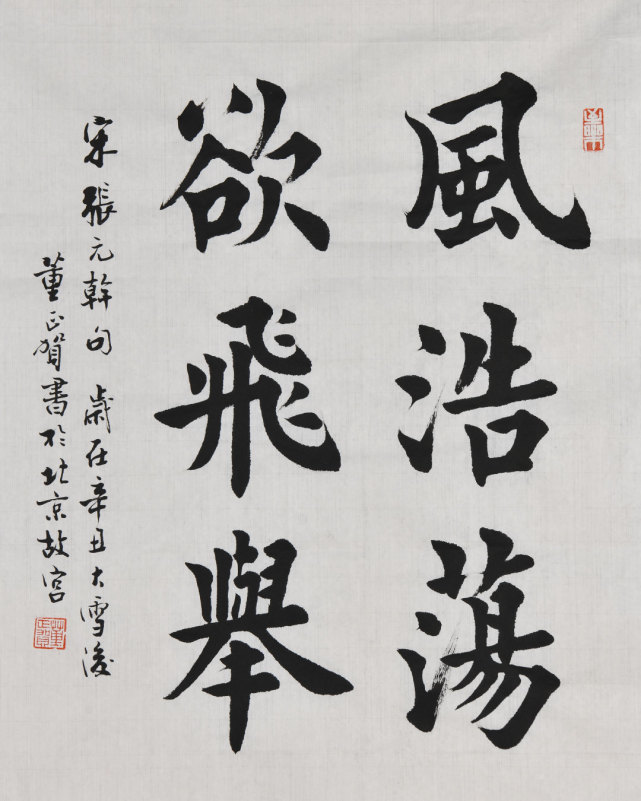 風浩蕩
欲飛舉
宋張元幹句 歲在辛丑大雪後
董正賀書於北京故宮